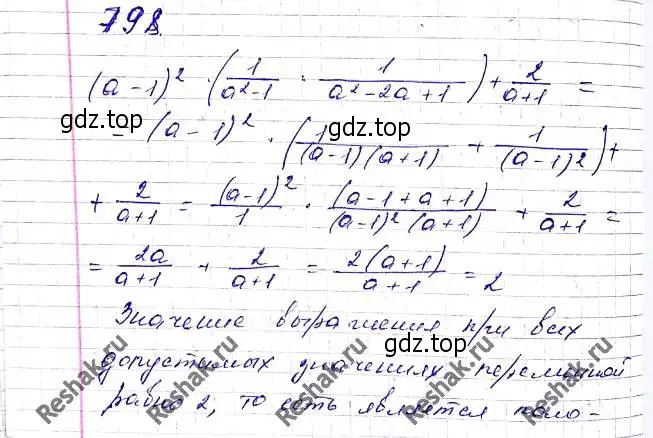 798.
(a-1)² · (1/(a²-1) · 1/(a²-2a+1)) + 2/(a+1) =
= (a-1)² · (1/((a-1)(a+1)) + 1/(a-1)²) +
+ 2/(a+1) = (a-1)²/1 · (a-1+a+1)/((a-1)²(a+1)) + 2/(a+1) =
= 2a/(a+1) + 2/(a+1) = 2(a+1)/(a+1) = 2
Значение выражения при всех
допустимых значениях переменной
равно 2, то есть является поло-
gdz.top
gdz.top
gdz.top
gdz.top
Reshak.ru
Reshak.ru
Reshak.ru
Reshak.ru